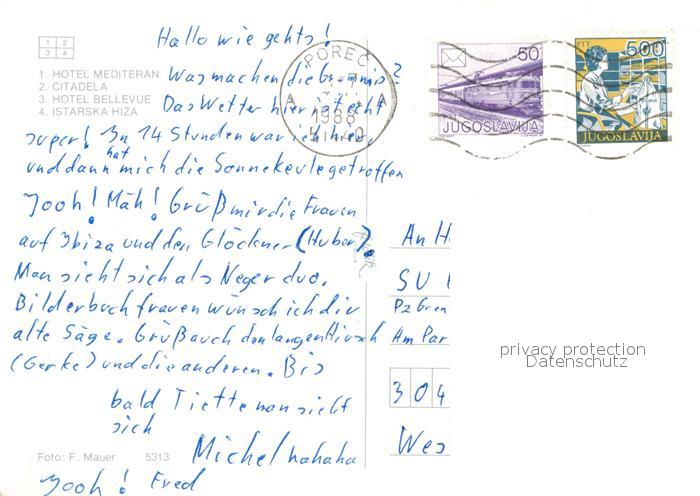 Hallo wie gehts!
1 2
3 4
1. HOTEL MEDITERAN
2. CITADELA
3. HOTEL BELLEVUE
4. ISTARSKA HIŽA
Was machen die Grammis?
Das Wetter hier ist echt
super! In 14 Stunden war ich hier
und dann hat mich die Sonnekeule getroffen
Jooh! Mäh! Grüß mir die Frauen
auf Ibiza und den Glöckner (Huber).
Man sieht sich als Neger duo.
Bilderbuch frauen wünsch ich dir
alte Säge. Grüß auch den langen Hirsch
(Gerke) und die anderen. Bis
bald Tiette man sieht
sich
Michel hahaha
Jooh! Fred
Foto: F. Mauer 5313
POREČ
A A
1988
50
JUGOSLAVIJA
PTT
500
JUGOSLAVIJA
An H
SU
Pz Gren
Am Par
304
Wes
privacy protection
Datenschutz